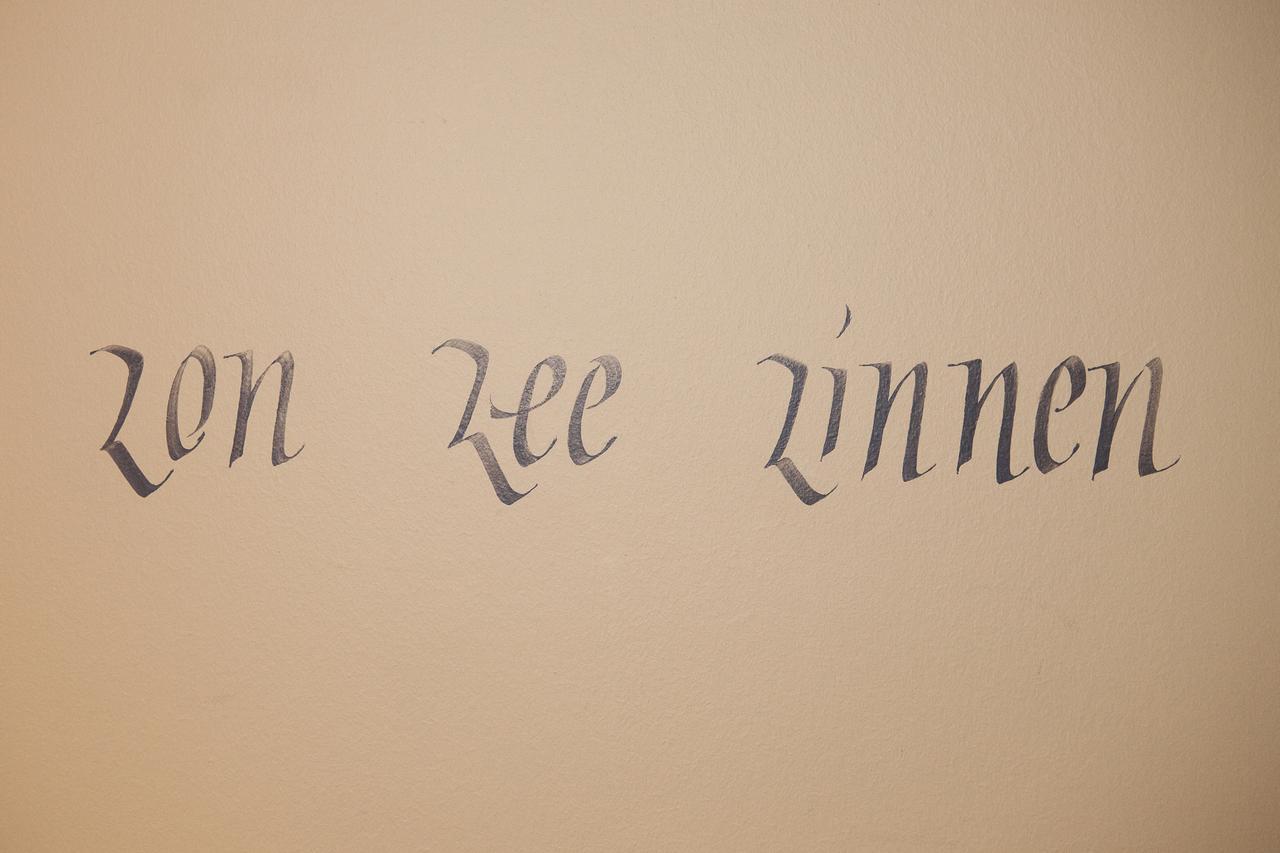 Zon Zee Zinnen